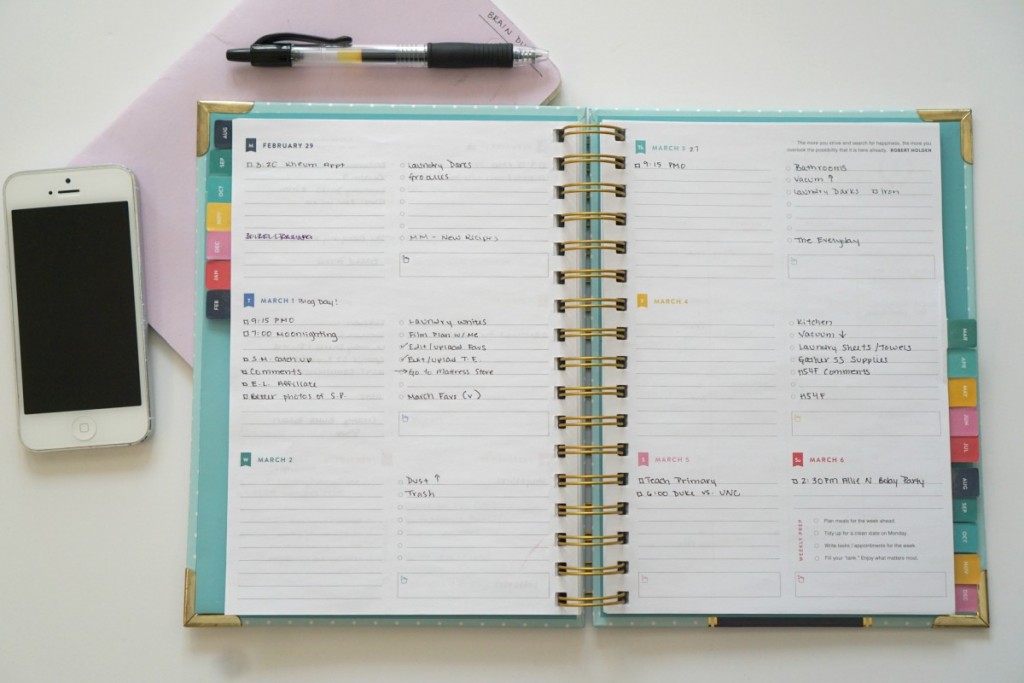 BRAIN
AUG
SEP
OCT
NOV
DEC
JAN
FEB
M FEBRUARY 29
Appt
Laundry Darks
Groceries
MM - New Recipes
T MARCH 1 Blog Day!
9:15 PMO
7:00 Moonlighting
S.M. Catch up
Comments
B.L. Affiliate
Better photos of S.P.
Laundry Whites
Film Plan w/Me
Edit/upload Favs
Edit/upload T.E.
→ Go to Mattress Store
March Favs (v)
W MARCH 2
Dust ↑
Trash
The more you strive and search for happiness, the more you
overlook the possibility that it is here already. ROBERT HOLDEN
MARCH 3
9:15 PMO
Bathrooms
Vacuum ↑
Laundry Darks Iron
The Everyday
F MARCH 4
Kitchen
Vacuum ↓
Laundry Sheets/Towels
Gather SS Supplies
HS4F Comments
HS4F
S MARCH 5
Teach Primary
6:00 Duke vs. UNC
MARCH 6
2:30 PM Allie N Baby Party
WEEKLY PREP
Plan meals for the week ahead.
Tidy up for a clean slate on Monday.
Write tasks / appointments for the week.
Fill your "tank." Enjoy what matters most.
MAR
APR
MAY
JUN
JUL
AUG
SEP
OCT
NOV
DEC